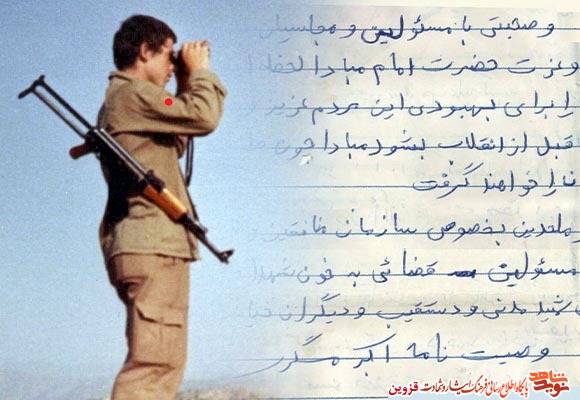 و صحبتی با مسئولین و مجلسیان
وعزت حضرت امام مبادا لحظه‌ا
را برای بهبودی این مردم عزیز و
قبل از انقلاب بشود مبادا خون
نا را خواهند گرفت
ملحدین بخصوص سازمان منافقین و
مسئولین قضائی به خون شهدا
شهید مدنی و دستغیب و دیگران
وصیت نامه اکبر
نوید شاهد
پایگاه اطلاع رسانی فرهنگ ایثار و شهادت قزوین